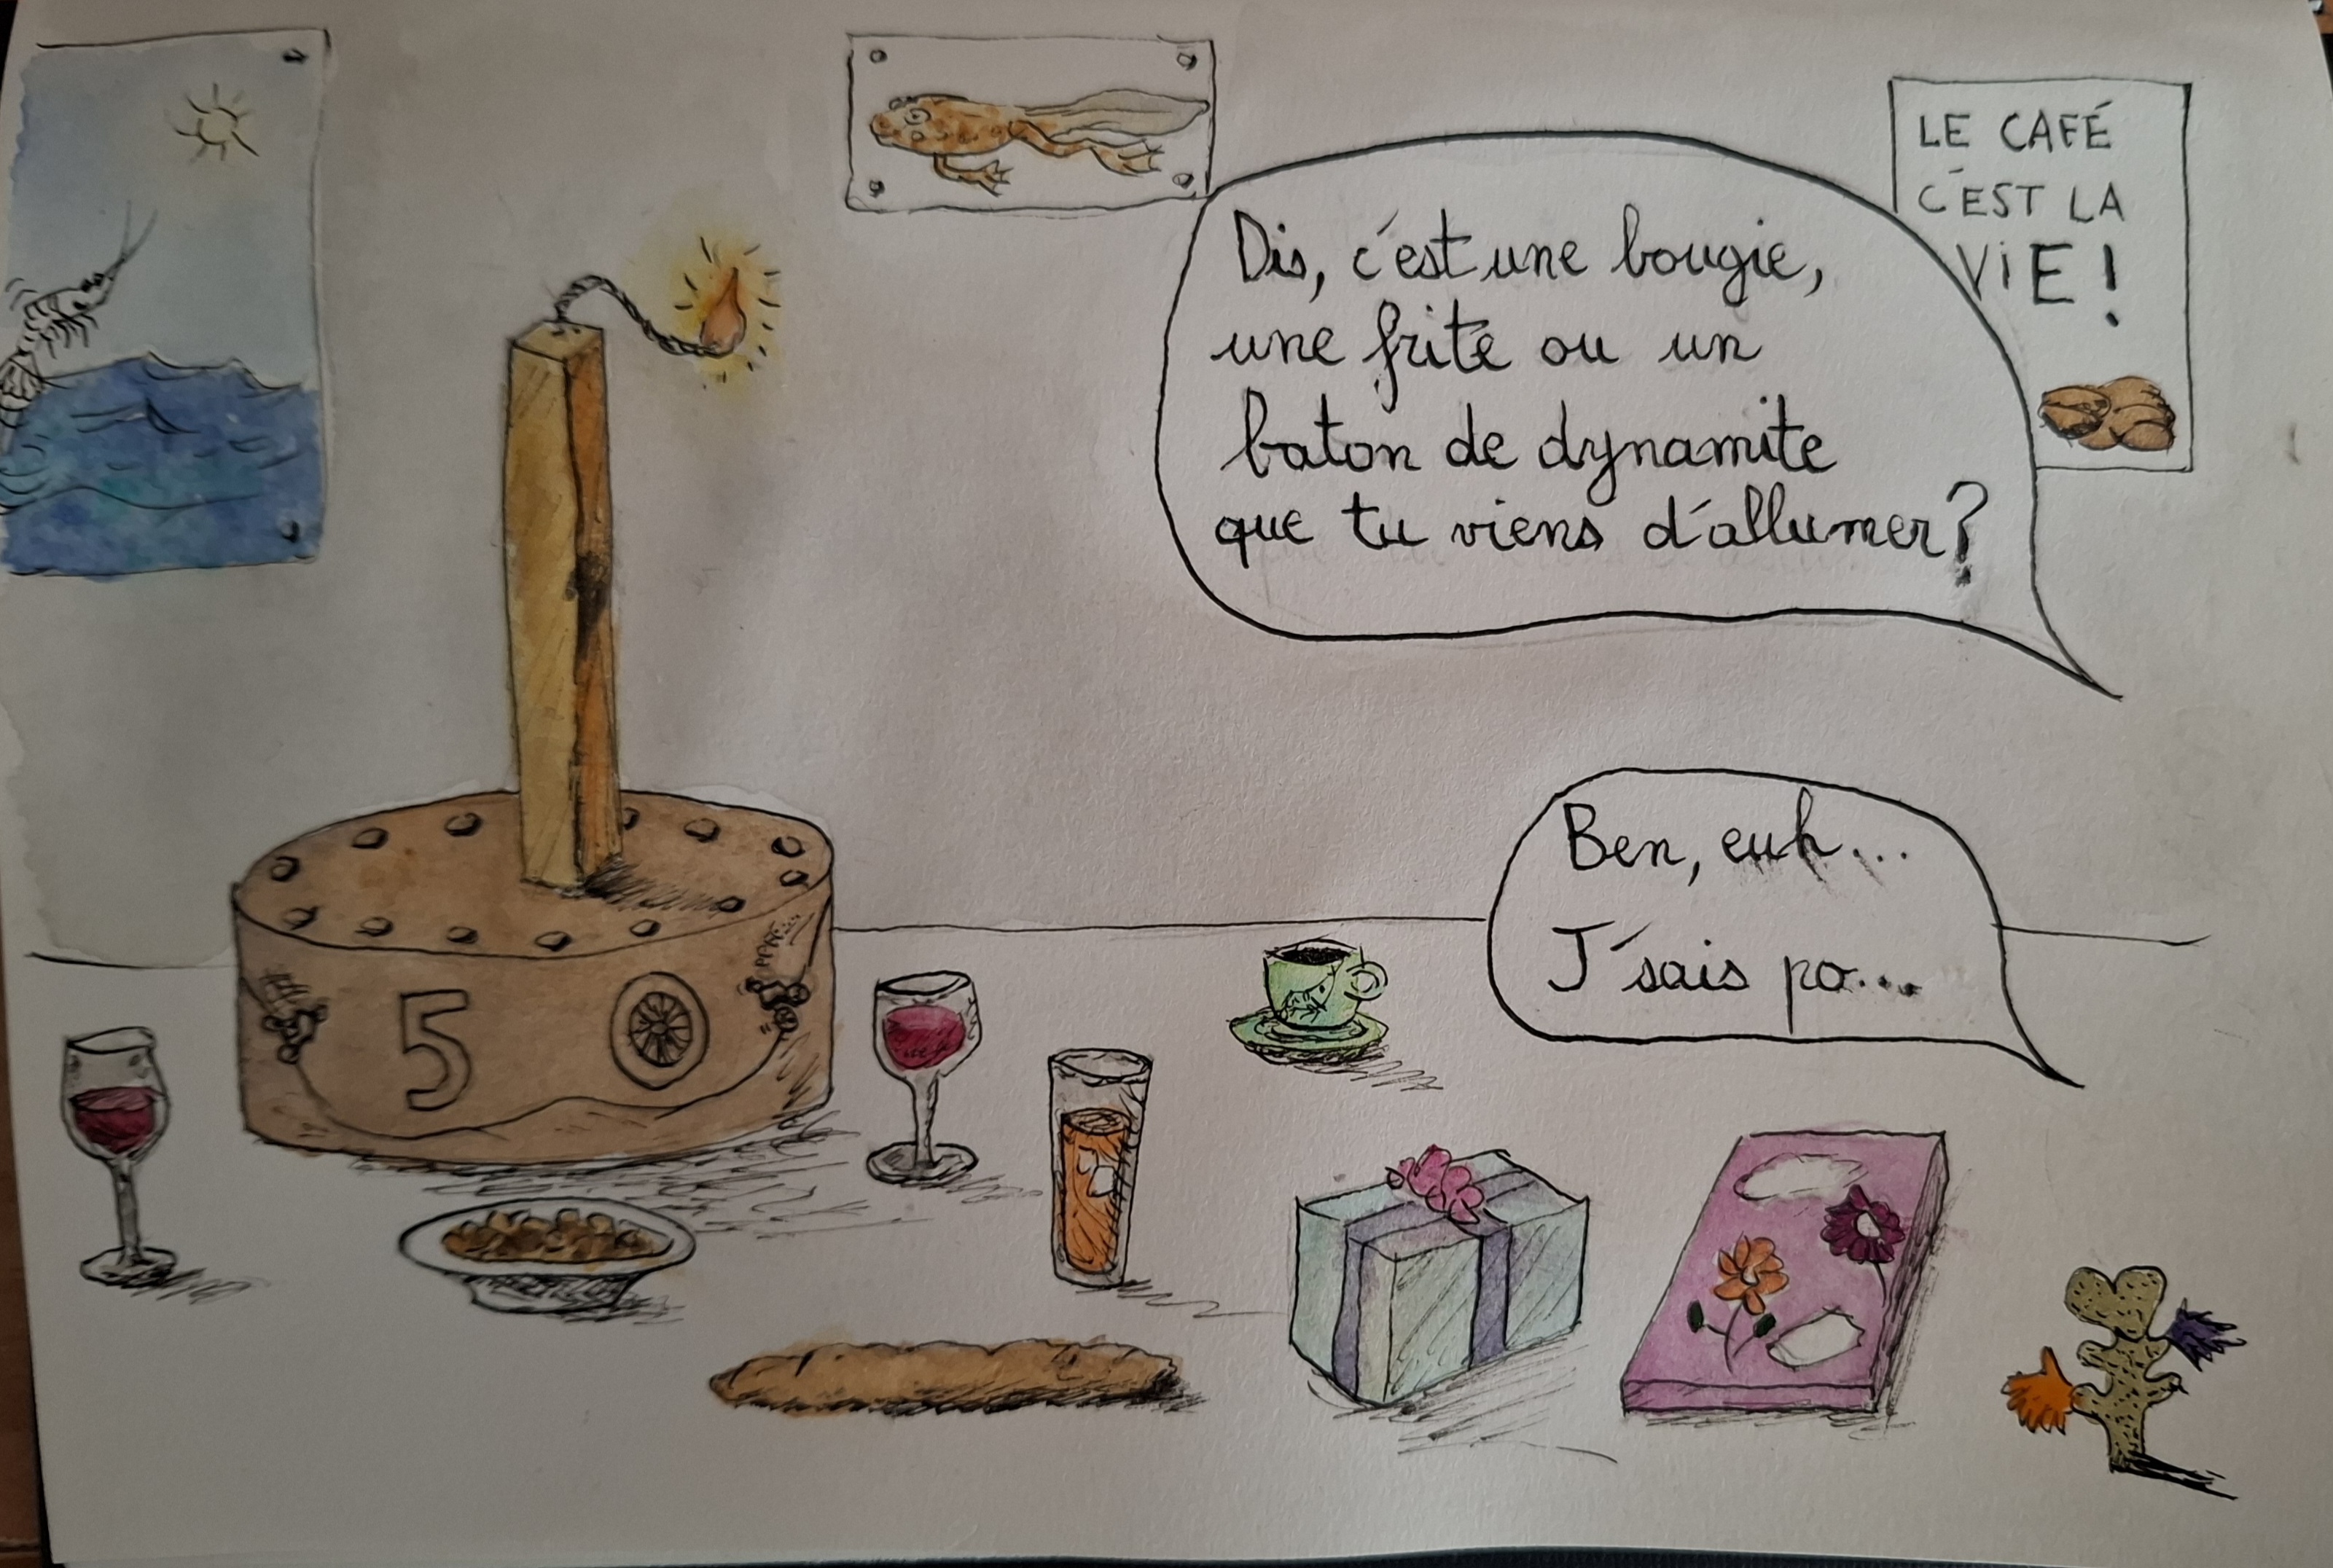 LE CAFÉ
C'EST LA
VIE !
Dis, c'est une bougie,
une frite ou un
baton de dynamite
que tu viens d'allumer?
Ben, euh...
J'sais po...
5